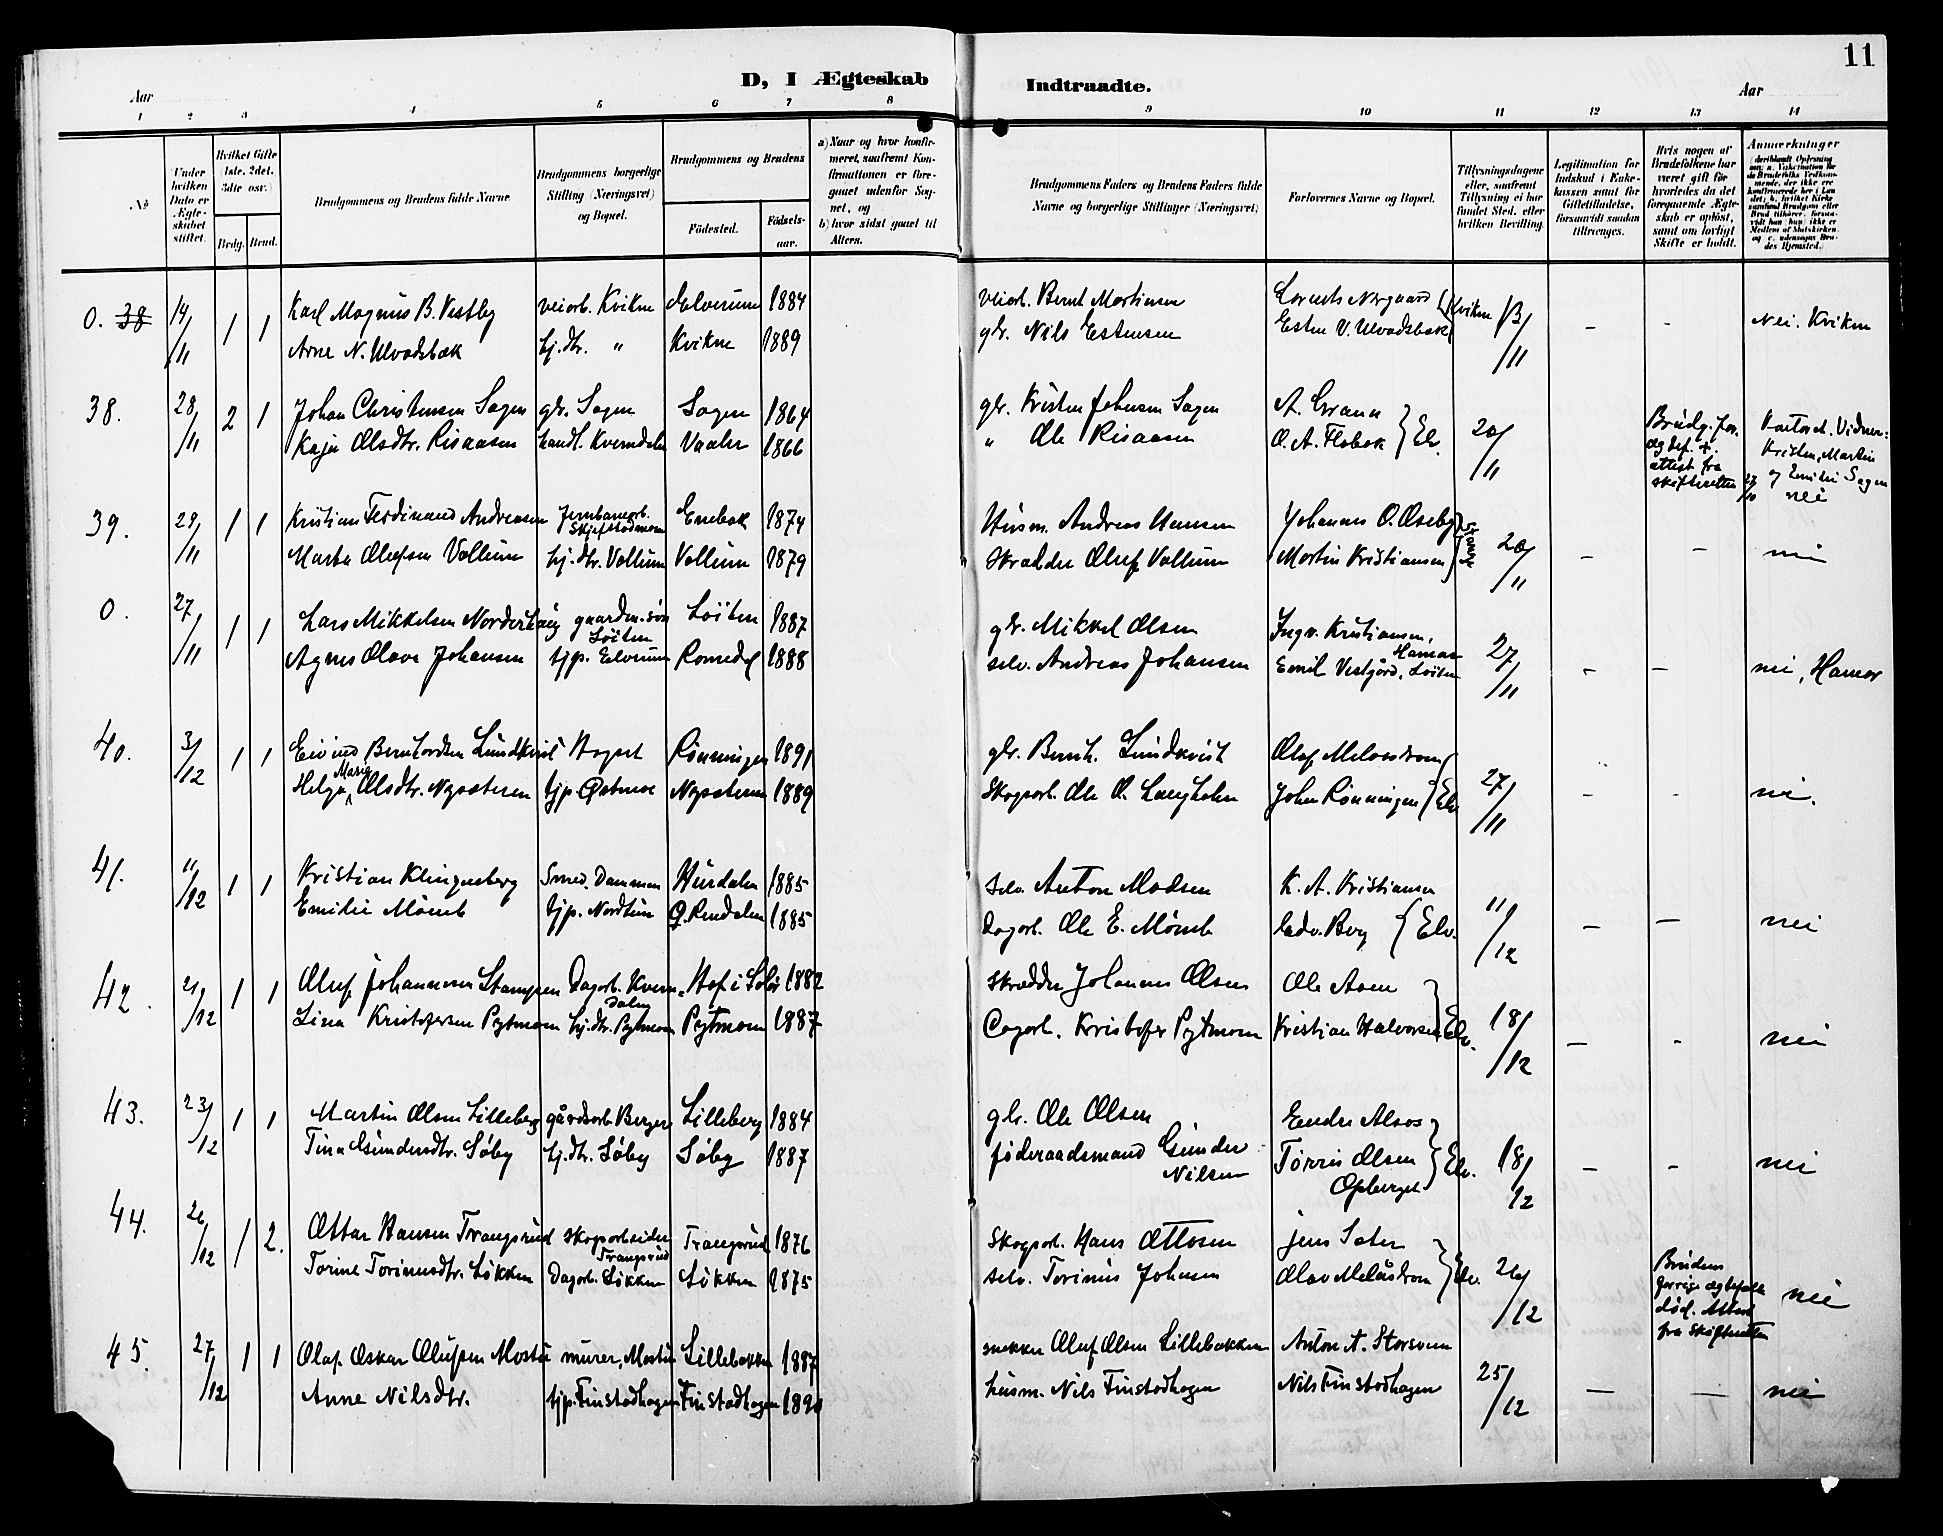 11
D, I Ægteskab Indtraadte.
Aar Aar
1 2 3 4 5 6 7 8 9 10 11 12 13 14
No
Under hvilken Dato er Ægteskabet stiftet.
Hvilket Gifte (1ste, 2det, 3die osv.)
Brdg. Brud.
Brudgommens og Brudens fulde Navne
Brudgommens borgerlige Stilling (Næringsvei) og Bopæl.
Brudgommens og Brudens
Födested. Födselsaar.
a) Naar og hvor konfirmeret, saafremt Konfirmationen er foregaaet udenfor Sognet, og
b) hvor sidst gaaet til Alters.
Brudgommens Faders og Brudens Faders fulde Navne og borgerlige Stillinger (Næringsvei)
Forlovernes Navne og Bopæl.
Tillysningsdagene eller, saafremt Tillysning ei har fundet Sted, efter hvilken Bevilling.
Legitimation for Indskud i Enkekassen samt for Giftetilladelse, forsaavidt saadan tiltrænges.
Hvis nogen af Brudefolkene har været gift för hvorledes da det foregaaende Ægteskab er oplöst, samt om lovligt Skifte er holdt.
Anmærkninger
0. 38 14/11 1 1 Karl Magnus B. Vestby veiarb. Kvikne Elverum 1884 veiarb. Bernt Martinsen Lorents Nergaard Kvikne 13/11 - - Nei. Kvikne
Arne N. Ulvadsbæk hj.dtr. " Kvikne 1889 gbr. Nils Estensen Esten V. Ulvadsbæk
38. 28/11 2 1 Johan Christensen Sagen gbr. Sagen Sagen 1864 gbr. Kristen Johnsen Sagen A. Grann 20/11
Kaja Olsdtr. Risaasen handl. Kverndalen Vaaler 1866 " Ole Risaasen O. A. Flobak Elv.
Brudg. for. ægtef. + attest fra skifteretten 27/10
Kristen, Martin og Emilie Sagen nei
39. 29/11 1 1 Kristian Ferdinand Andreasen Jernbanearb. Enebak 1874 Husm. Andreas Hansen Johannes O. Oseby 20/11 - - nei
Marta Olufsen Vollum hj.dtr. Vollum Vollum 1879 Skrædder Oluf Vollum Martin Kristiansen
0. 27/11 1 1 Lars Mikkelsen Norderhaug gaardm.søn Løiten Løiten 1887 gbr. Mikkel Olsen Ingv. Kristiansen, Hamar 27/11 - - nei, Hamar
Agnes Olave Johansen tjp. Elverum Romedal 1888 selv. Andreas Johansen Emil Vestgård, Løiten
40. 3/12 1 1 Eivind Bernhardsen Lundkvist Rønningen 1891 gbr. Bernh. Lundkvist Olaf Melåstrøm 27/11 - - nei.
Helga Marie Olsdtr. Nysæteren tjp. Østmoe Nysæteren 1889 Skogsarb. Ole O. Langholen John Rønningen Elv
41. 11/12 1 1 Kristian Klingenberg Smed. Dammen Hurdalen 1885 selv. Anton Madsen K. A. Kristiansen 11/12 - - nei
Emilie Mømb tjp. Nordtun Ø. Rendalen 1885 Dagarb. Ole E. Mømb Edv. Berg Elv.
42. 21/12 1 1 Oluf Johannesen Stampen Dagarb. Kverndalen Hof i Solør 1882 skrædder Johannes Olsen Ole Aasen 18/12 - - nei
Lina Kristofersen Pytmoen hj.dtr. Pytmoen Pytmoen 1887 Dagarb. Kristofer Pytmoen Kristian Halvorsen Elv.
43. 23/12 1 1 Martin Olsen Lilleberg gårdsarb. Berger Lilleberg 1884 gbr. Ole Olsen Endre Alsos 18/12 - - nei
Tina Gundersdtr. Søby hj.dtr. Søby Søby 1887 føderaadsmand Gunder Nilsen Tørris Olsen Opberget Elv.
44. 26/12 1 2. Ottar Hansen Trangsrud skogsarbeider Trangsrud Trangsrud 1876 Skogsarb. Hans Ottosen Jens Sater 26/12
Torine Torinusdtr. Løkken Dagarb. Løkken Løkken 1875 selv. Torinus Johnsen Olav Melåstrøm Elv.
Brudens forrige ægtefælle død. Attest fra Skifteretten
nei
45. 27/12 1 1 Olaf Oskar Olufsen Mostue murer, Mostue Lillebakken 1887 snekker Oluf Olsen Lillebakken Anton A. Storsveen 25/12 - - nei
Anne Nilsdtr. tjp. Finstadhagen Finstadhagen 1890 husm. Nils Finstadhagen Nils Finstadhagen